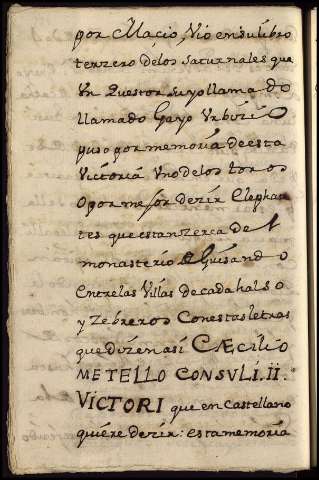 por Macio, Vio ensu libro
terzero delos saturnales que
Un Questor suyo llamado
llamado Gayo Urbizio
puso por memoria de esta
Victoria Uno delos toros
O por mejor dezir Elepha
tes que estan zerca de l
monasterio Guisando
Entre las Villas de cadahalso
y zebreros Con estas letras
que dizen asi CÆCILIO
METELLO CONSVLI. II.
VICTORI que en castellano
quiere dezir: esta memoria